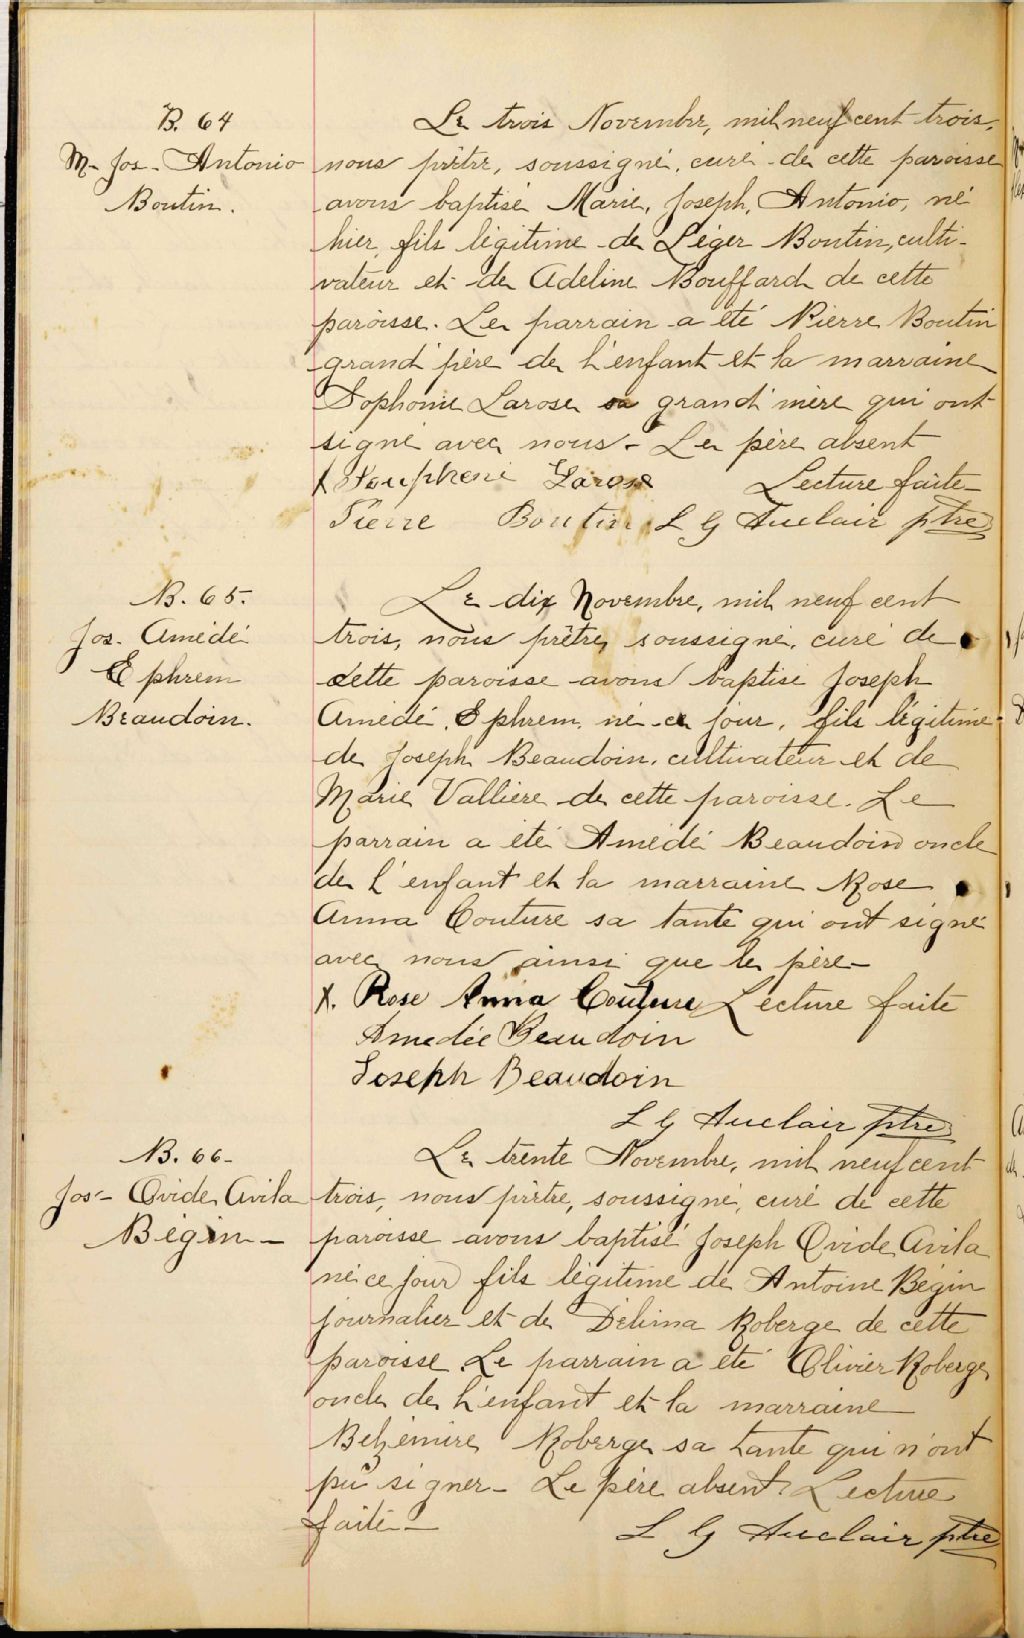 B. 64
M- Jos- Antonio
Boutin.
Le trois Novembre, mil neuf cent trois,
nous prêtre, soussigné, curé de cette paroisse
avons baptisé Marie, Joseph, Antonio, né
hier, fils légitime de Léger Boutin, culti-
vateur et de Adeline Bouffard de cette
paroisse. Le parrain a été Pierre Boutin
grand'père de l'enfant et la marraine
Sophonie Larose sa grand'mère qui ont
signé avec nous - Le père absent
X Larose Lecture faite -
Pierre Boutin. L G Auclair ptre
B. 65.
Jos. Amédé
Ephrem
Beaudoin.
Le dix Novembre, mil neuf cent
trois, nous prêtre, soussigné, curé de
cette paroisse avons baptisé Joseph
Amédé, Ephrem, né ce jour, fils légitime
de Joseph Beaudoin, cultivateur et de
Marie Vallière de cette paroisse. Le
parrain a été Amédé Beaudoin oncle
de l'enfant et la marraine Rose
Anna Couture sa tante qui ont signé
avec nous ainsi que le père -
X. Rose Anna Couture Lecture faite
Amedée Beaudoin
Joseph Beaudoin
L G Auclair ptre
B. 66 -
Jos - Ovide Avila
Bégin -
Le trente Novembre, mil neuf cent
trois, nous prêtre, soussigné, curé de cette
paroisse avons baptisé Joseph Ovide Avila
né ce jour fils légitime de Antoine Bégin
journalier et de Délima Roberge de cette
paroisse. Le parrain a été Olivier Roberge
oncle de l'enfant et la marraine
Roberge sa tante qui n'ont
pu signer - Le père absent. Lecture
faite -
L G Auclair ptre